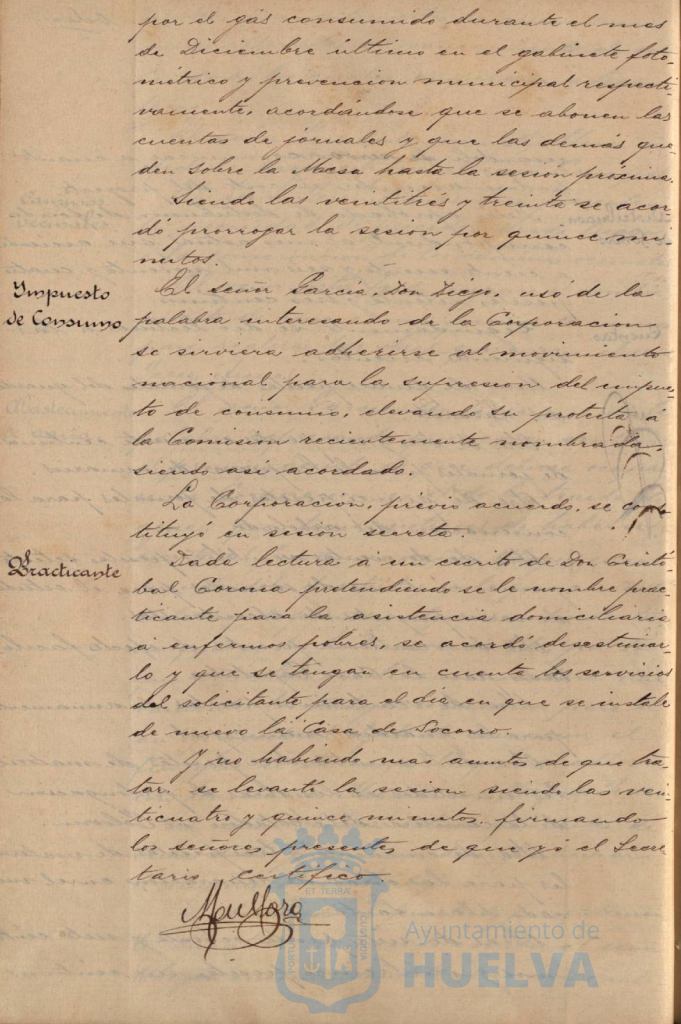 por el gas consumido durante el mes
de Diciembre último en el gabinete foto-
métrico y prevencion municipal respecti-
vamente, acordándose que se abonen las
cuentas de jornales y que las demás que-
den sobre la Mesa hasta la sesión próxima.
Siendo las veintitrés y treinta se acor-
dó prorrogar la sesion por quince mi-
nutos.
Impuesto
de Consumo
El señor García, Don Diego, usó de la
palabra interesando de la Corporacion
se sirviera adherirse al movimiento
nacional para la supresion del impues-
to de consumo, elevando su protesta á
la Comision recientemente nombrada,
siendo así acordado.
La Corporacion, prévio acuerdo, se cons-
tituyó en sesion secreta.
Practicante
Dada lectura á un escrito de Don Cristó-
bal Corona pretendiendo se le nombre prac-
ticante para la asistencia domiciliaria
á enfermos pobres, se acordó desestimar-
lo y que se tengan en cuenta los servicios
del solicitante para el día en que se instale
de nuevo la Casa de Socorro.
Y no habiendo mas asuntos de que tra-
tar se levantó la sesion siendo las vein-
ticuatro y quince minutos, firmando
los señores presentes, de que yó el Secre-
tario certifico.
ET TERRA
PORTUS
CUSTODIA
Ayuntamiento de
HUELVA